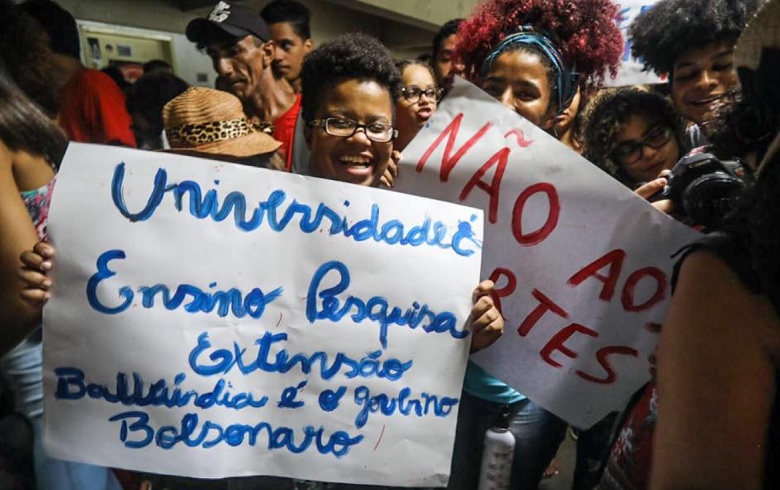 Universidade é
Ensino Pesquisa
Extensão
Balbúrdia é o governo
Bolsonaro
NÃO
AOS
RTES